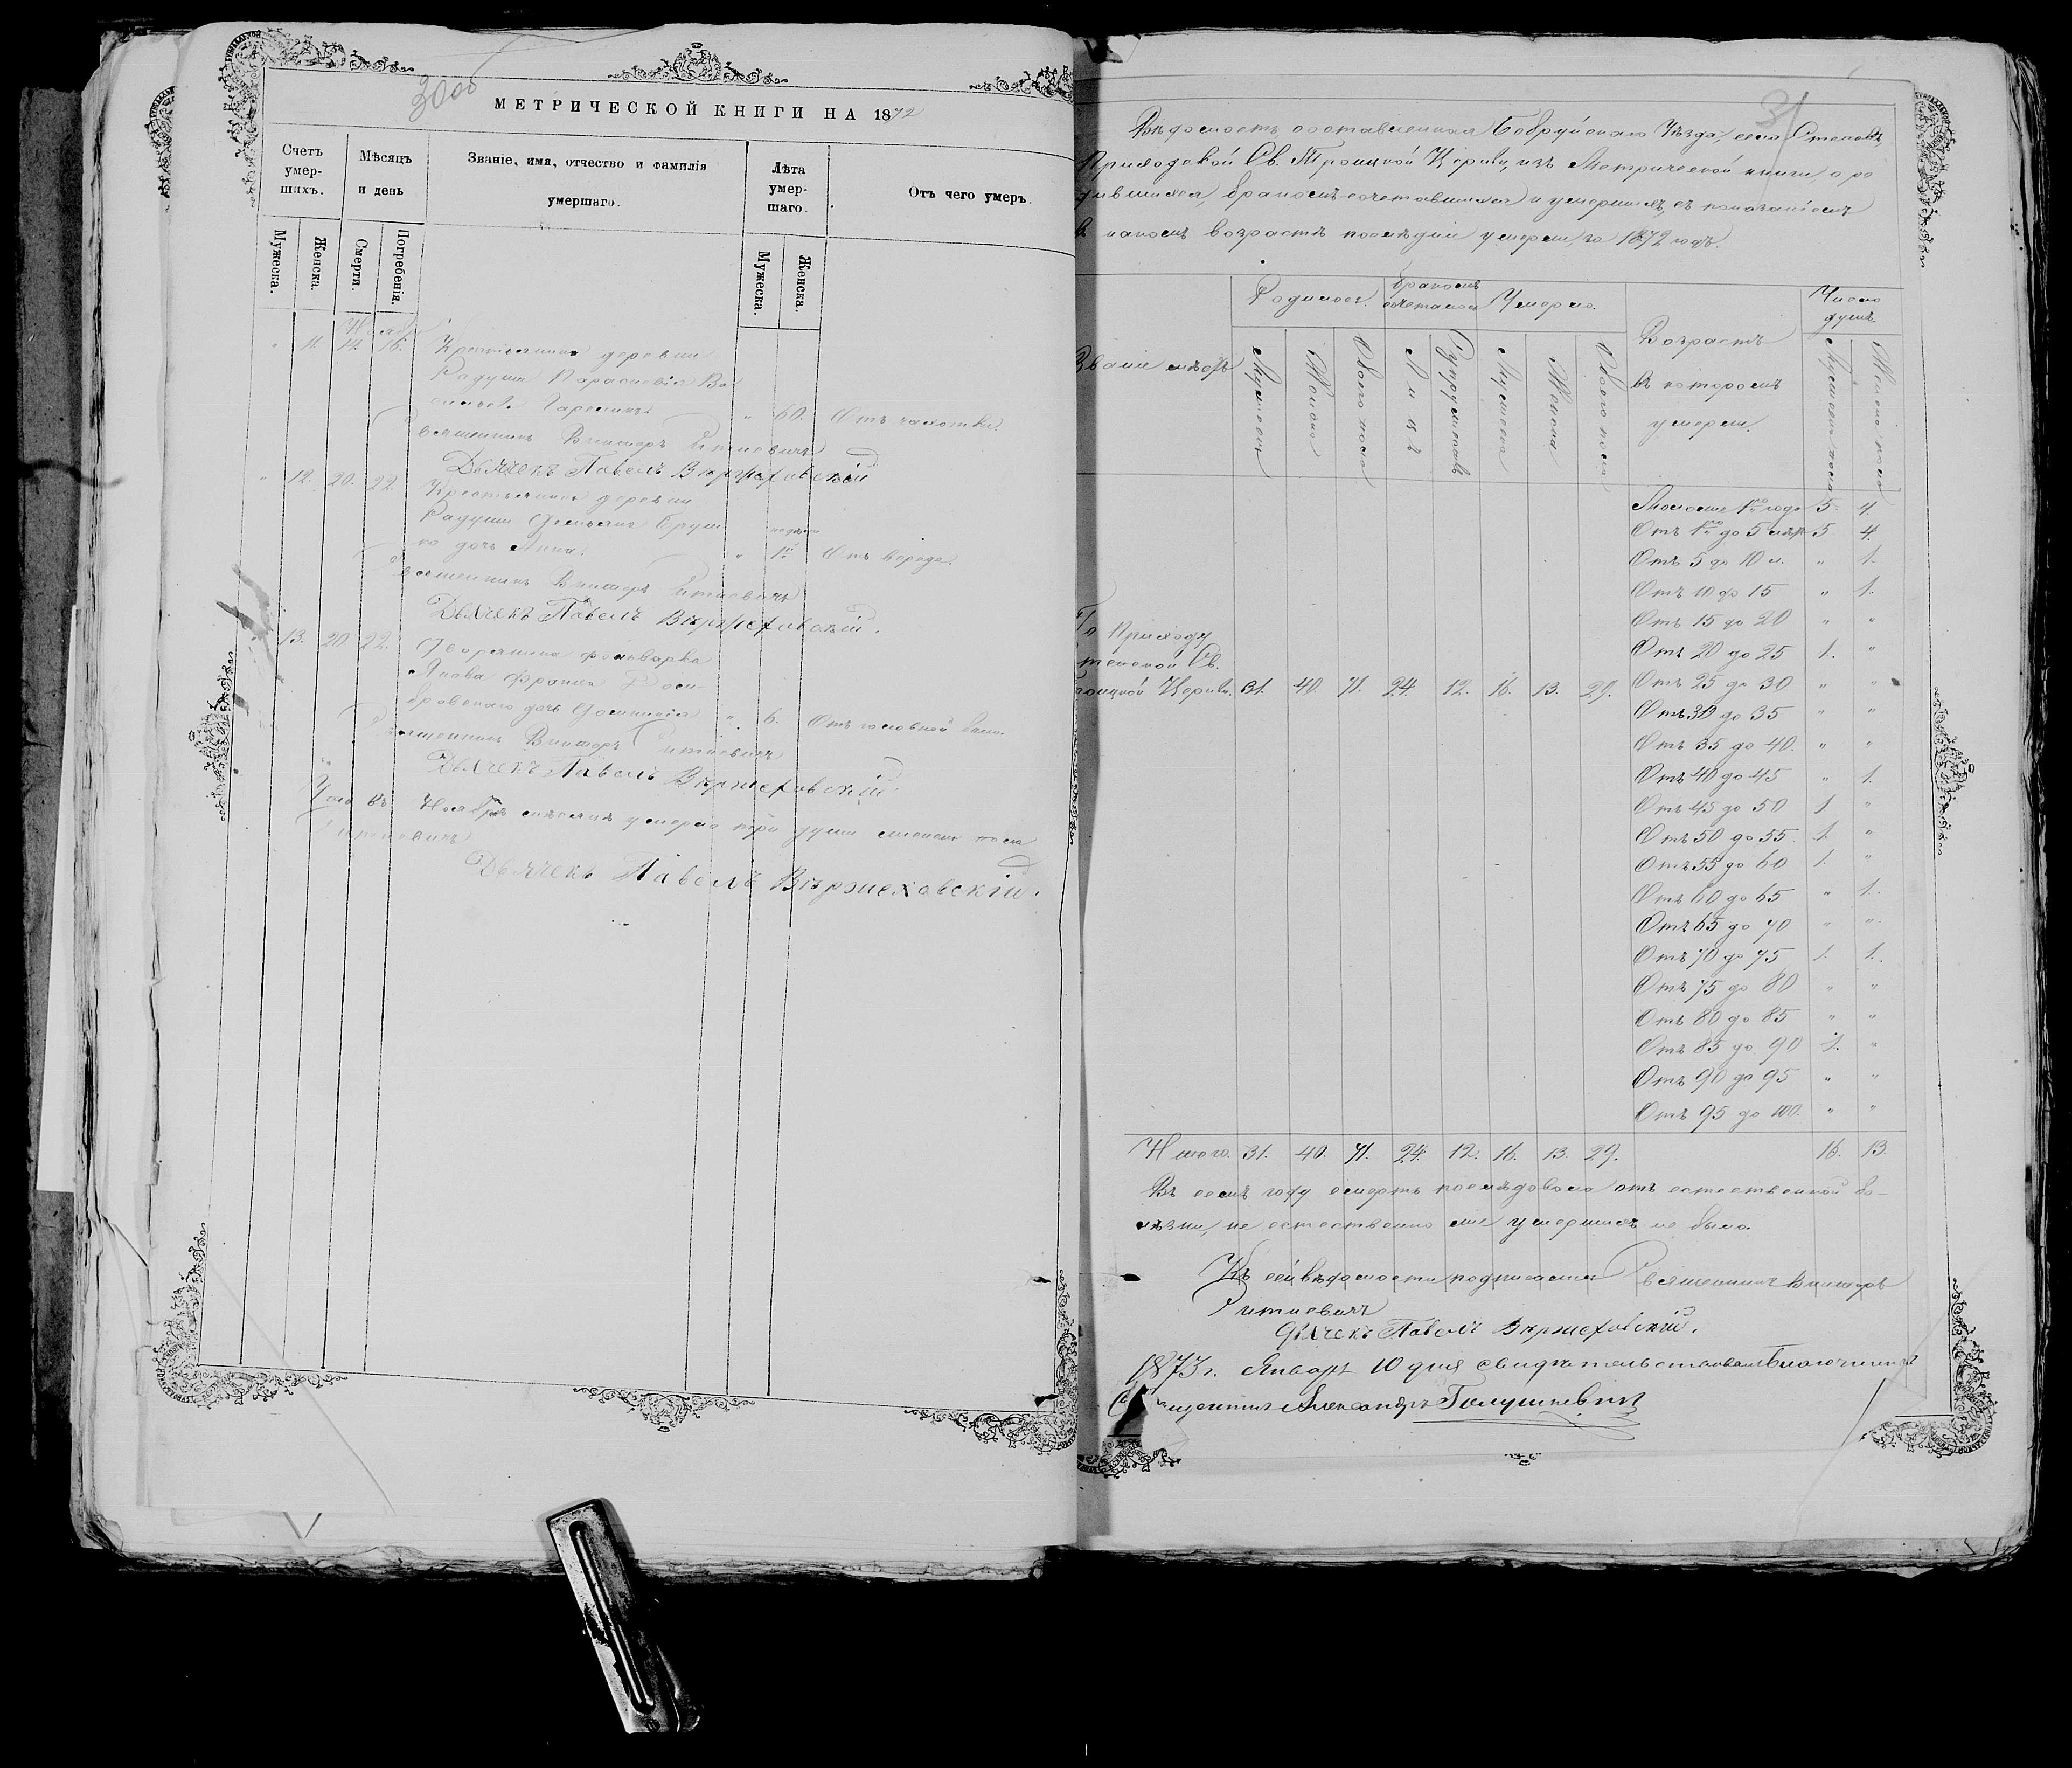 30об
МЕТРИЧЕСКОЙ КНИГИ НА 1872
Счетъ умер-шихъ.
Мѣсяцъ и день
Званіе, имя, отчество и фамилія умершаго.
Лѣта умер-шаго.
Отъ чего умеръ.
Мужеска. Женска. Смерти. Погребенія. Мужеска. Женска.
Ноябрь
" 11. 14. 16. Крестьянка деревни
Радуши Параскевія Ва
сильева " 60. Отъ чахотки.
Священникъ Викторъ
Дьячекъ Павелъ Вержеховскій
" 12. 20. 22. Крестьянина деревни
Радуши
ко дочь Анна. " 1 Отъ вереда.
Священникъ Викторъ
Дьячекъ Павелъ Вержеховскій.
13. 20. 22. Дворянина фольварка
Янова Франца
бровскаго дочь " 6. Отъ головной боли.
Священникъ Викторъ
Дьячекъ Павелъ Вержеховскій
Ноябрѣ мѣсяцѣ умерло три души женска пола
Дьячекъ Павелъ Вержеховскій.
31
Вѣдомость составленная Бобруйскаго Уѣзда, села Степовъ
Приходской Св. Троицкой Церкви, изъ Метрической книги, о ро
дившихся, бракомъ сочетавшихся и умершихъ, съ показаніемъ
въ какомъ возрастѣ послѣдніе умерли, за 1872 годъ.
Родилось. Бракомъ сочеталось Умерло. Возрастъ въ которомъ умерли. Число душъ.
Званіе мѣстъ Мужеска Женска Обоего пола Лицъ Супружествъ Мужеска Женска Обоего пола Мужеска пола Женска пола
Моложе 1го года 5. 4.
Отъ 1го до 5 лѣтъ 5 4.
Отъ 5 до 10 л. " 1.
Отъ 10 до 15 " 1.
Отъ 15 до 20 " "
По Приходу
Отъ 20 до 25 1. "
Св.
Троицкой Церкви. 31. 40. 71. 24. 12. 16. 13. 29. Отъ 25 до 30 " "
Отъ 30 до 35 " "
Отъ 35 до 40. " "
Отъ 40 до 45 " 1.
Отъ 45 до 50 1 "
Отъ 50 до 55. 1. "
Отъ 55 до 60 1. "
Отъ 60 до 65 " 1.
Отъ 65 до 70 " "
Отъ 70 до 75 1. 1.
Отъ 75 до 80 " "
Отъ 80 до 85 " "
Отъ 85 до 90 1. "
Отъ 90 до 95 " "
Отъ 95 до 100. " "
Итого. 31. 40. 71. 24. 12. 16. 13. 29. 16. 13.
Въ семъ году смерть послѣдовала отъ естественной бо-
лѣзни, не естественно же умершихъ не было.
Къ сей вѣдомости подписались Священникъ Викторъ
Дьячекъ Павелъ Вержеховскій.
1873 г. Января 10 дня свидѣтельствовалъ Благочинный
Священникъ Александръ